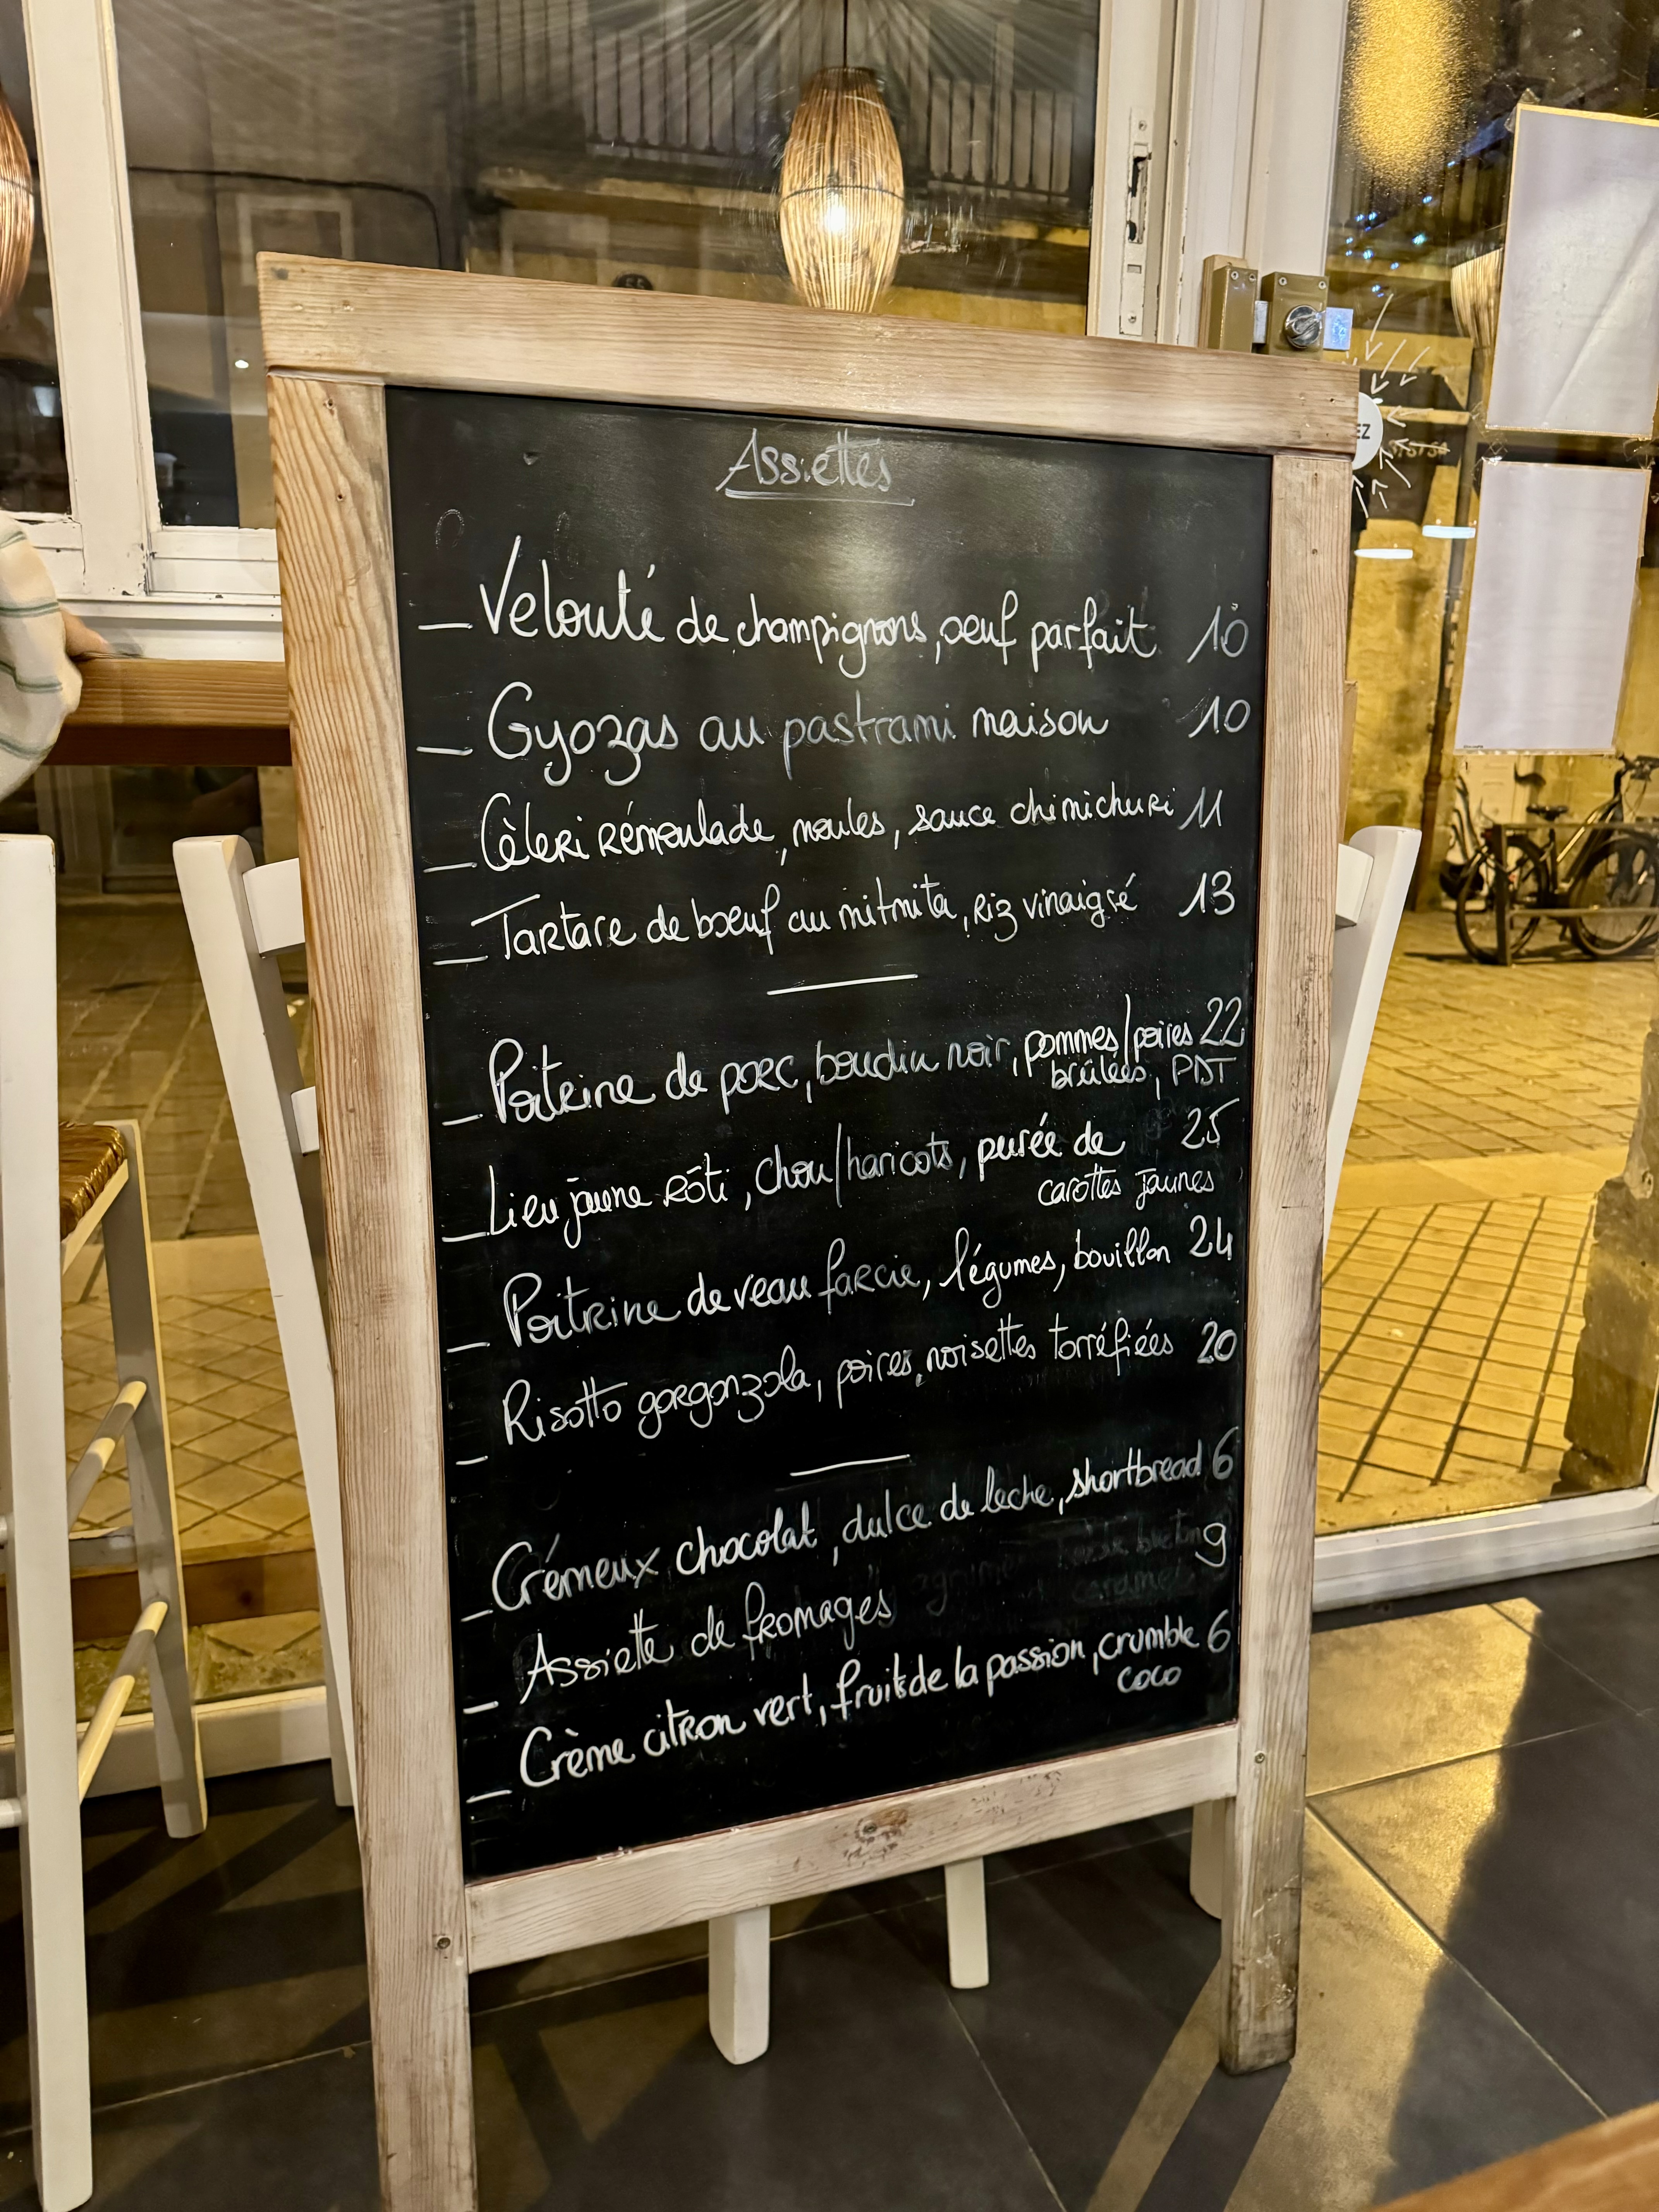 Assiettes
— Velouté de champignons, oeuf parfait 10
— Gyozas au pastrami maison 10
— Céleri rémoulade, moules, sauce chimichuri 11
— Tartare de boeuf au mitmita, riz vinaigré 13
— Poitrine de porc, boudin noir, pommes/poires 22
brûlées, PDT
— Lieu jaune rôti, chou/haricots, purée de 25
carottes jaunes
— Poitrine de veau farcie, légumes, bouillon 24
— Risotto gorgonzola, poires, noisettes torréfiées 20
— Crémeux chocolat, dulce de leche, shortbread 6
— Assiette de fromages 9
— Crème citron vert, fruits de la passion, crumble 6
coco
EZ